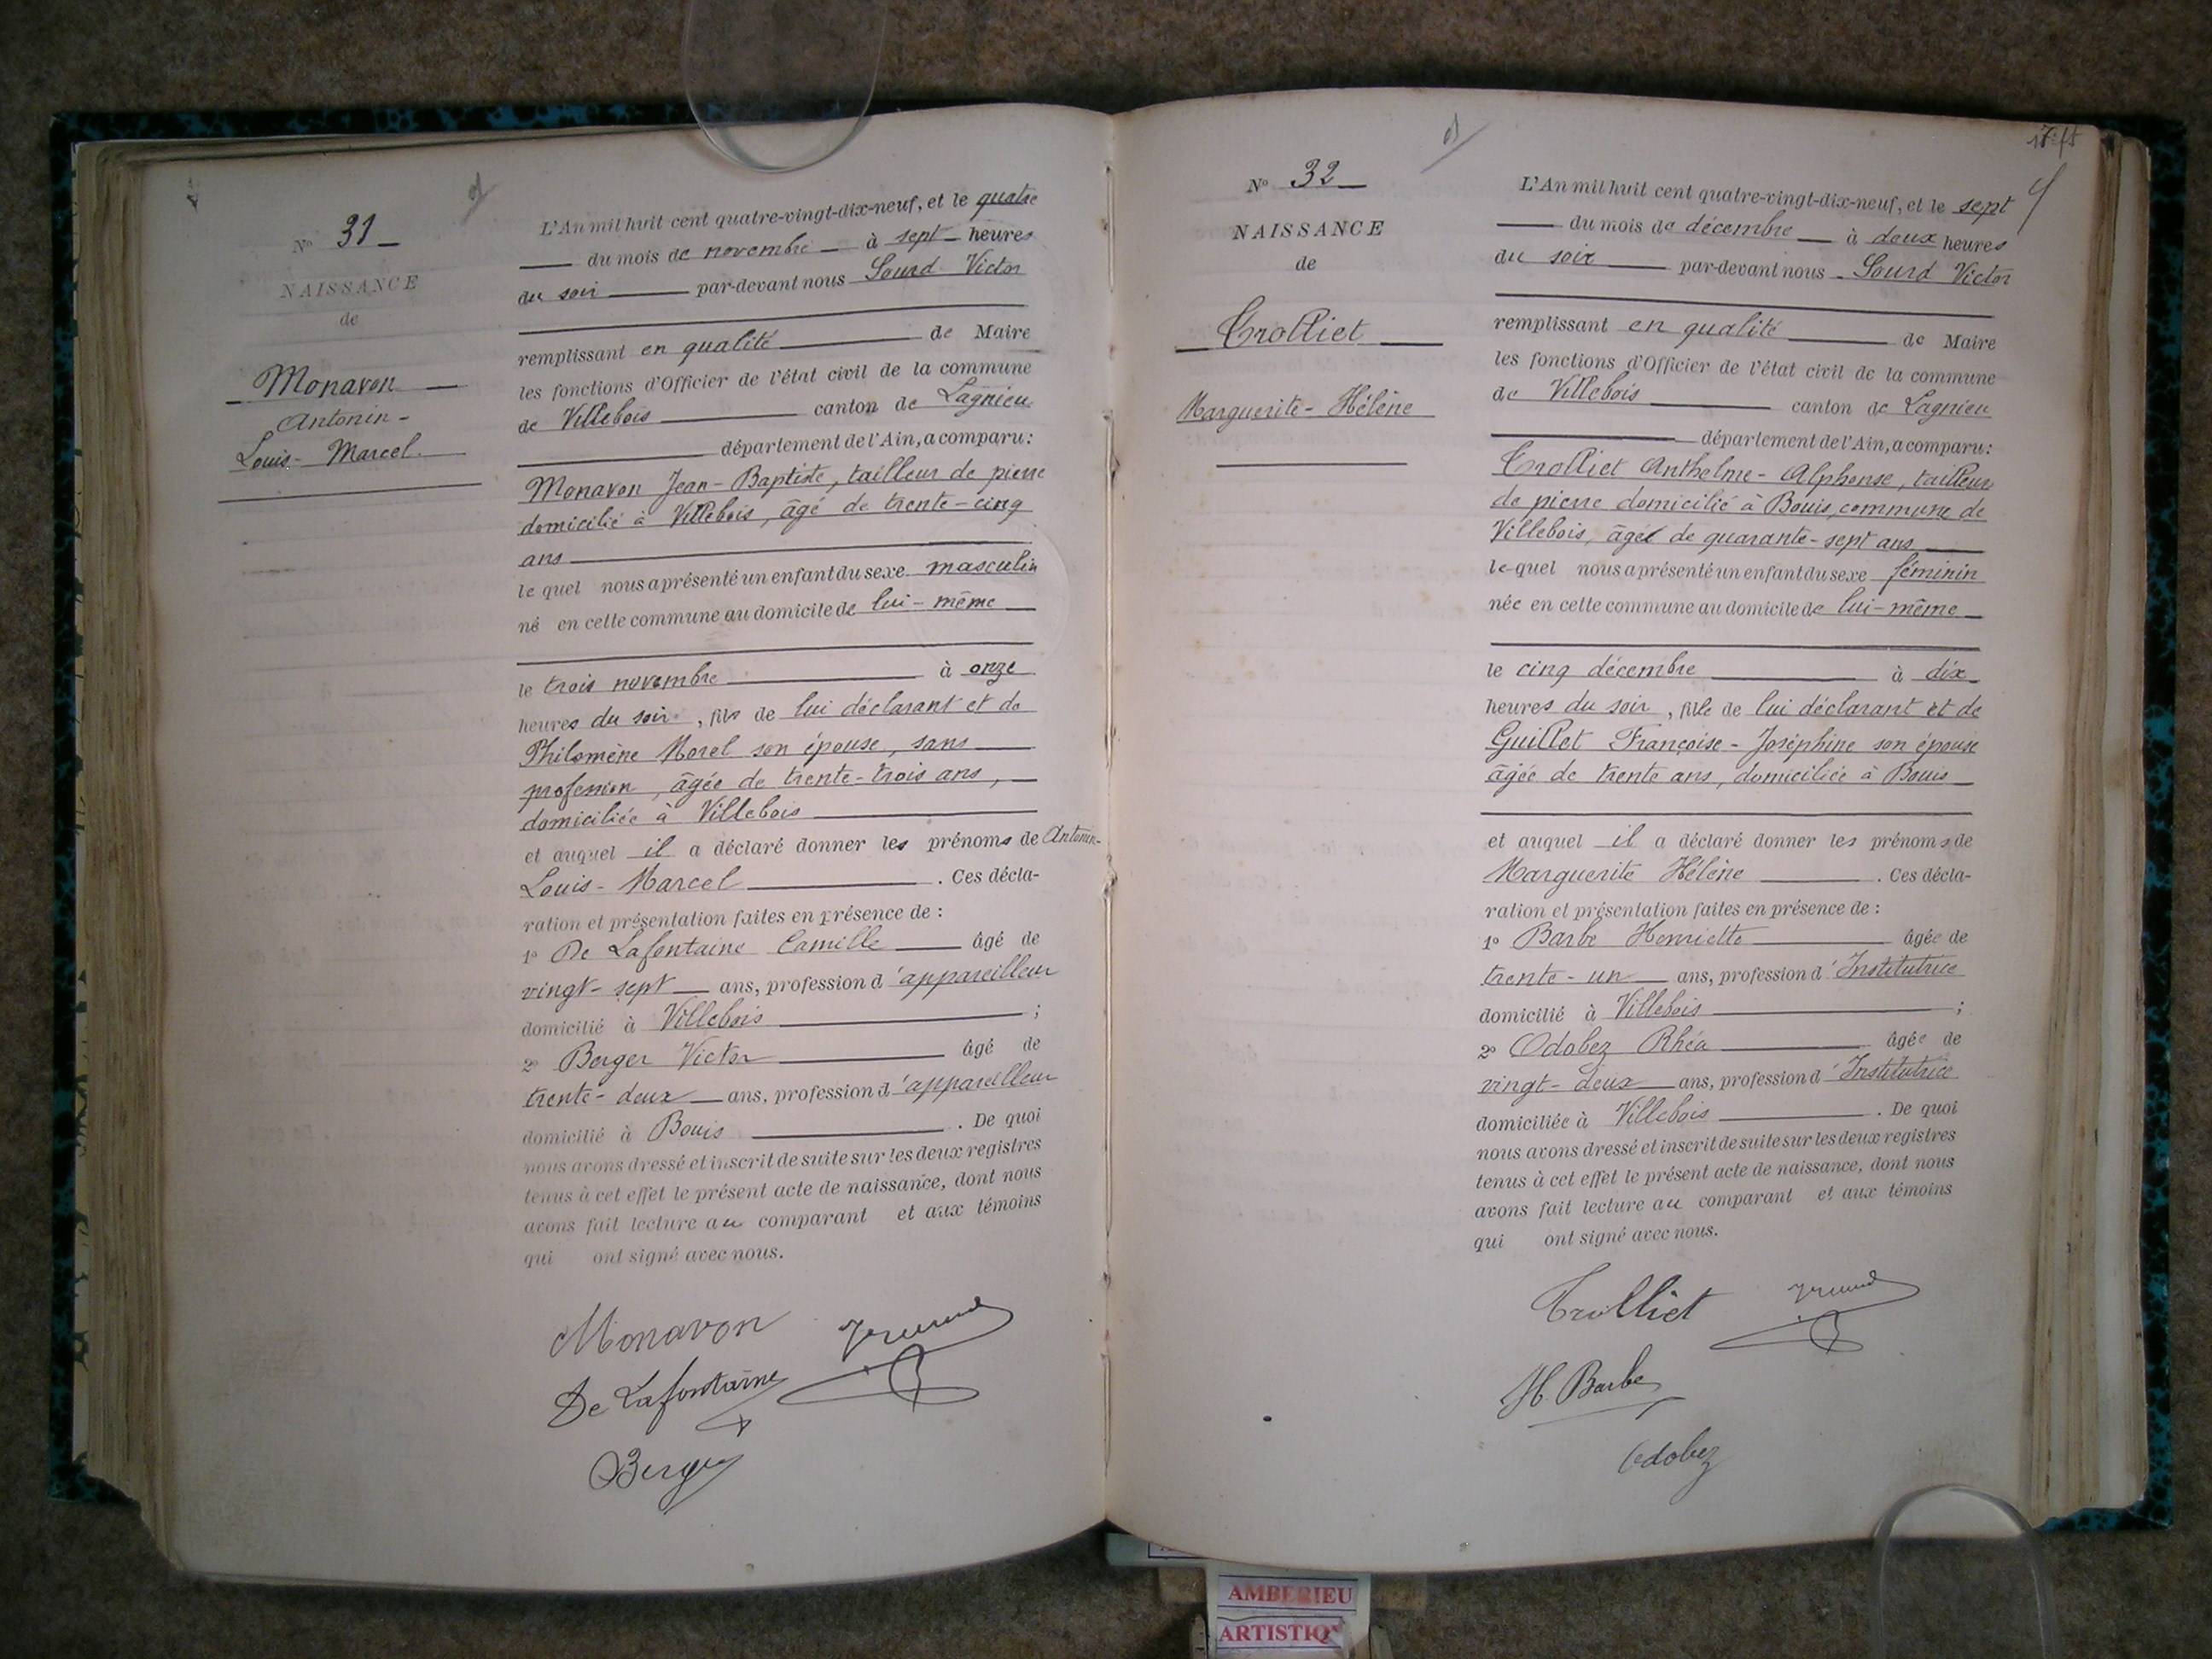 N° 31
NAISSANCE
de
Monavon
Antonin-
Louis-Marcel.
L'An mil huit cent quatre-vingt-dix-neuf, et le quatre
du mois de novembre à sept heures
du soir par-devant nous Sourd Victor
remplissant en qualité de Maire
les fonctions d'Officier de l'état civil de la commune
de Villebois canton de Lagnieu
département de l'Ain, a comparu:
Monavon Jean-Baptiste, tailleur de pierre
domicilié à Villebois, âgé de trente-cinq
ans
le quel nous a présenté un enfant du sexe masculin
né en cette commune au domicile de lui-même
le trois novembre à onze
heures du soir, fils de lui déclarant et de
Philomène Morel son épouse, sans
profession, âgée de trente-trois ans,
domiciliée à Villebois
et auquel il a déclaré donner les prénoms de Antonin-
Louis-Marcel. Ces décla-
ration et présentation faites en présence de :
1° De Lafontaine Camille âgé de
vingt-sept ans, profession d'appareilleur
domicilié à Villebois ;
2° Berger Victor âgé de
trente-deux ans, profession d'appareilleur
domicilié à Bouis. De quoi
nous avons dressé et inscrit de suite sur les deux registres
tenus à cet effet le présent acte de naissance, dont nous
avons fait lecture au comparant et aux témoins
qui ont signé avec nous.
Monavon
De Lafontaine
Berger
N° 32
NAISSANCE
de
Trolliet
Marguerite-Hélène
L'An mil huit cent quatre-vingt-dix-neuf, et le sept
du mois de décembre à deux heures
du soir par-devant nous Sourd Victor
remplissant en qualité de Maire
les fonctions d'Officier de l'état civil de la commune
de Villebois canton de Lagnieu
département de l'Ain, a comparu:
Trolliet Anthelme-Alphonse, tailleur
de pierre domicilié à Bouis, commune de
Villebois, âgé de quarante-sept ans
le quel nous a présenté un enfant du sexe féminin
née en cette commune au domicile de lui-même
le cinq décembre à dix
heures du soir, fille de lui déclarant et de
Guillet Françoise-Joséphine son épouse
âgée de trente ans, domiciliée à Bouis
et auquel il a déclaré donner les prénoms de
Marguerite Hélène. Ces décla-
ration et présentation faites en présence de :
1° Barbe Henriette âgée de
trente-un ans, profession d'Institutrice
domicilié à Villebois ;
2° Odobez Rhéa âgée de
vingt-deux ans, profession d'Institutrice
domiciliée à Villebois. De quoi
nous avons dressé et inscrit de suite sur les deux registres
tenus à cet effet le présent acte de naissance, dont nous
avons fait lecture au comparant et aux témoins
qui ont signé avec nous.
Trolliet
H. Barbe
Odobez
AMBERIEU
ARTISTIQ